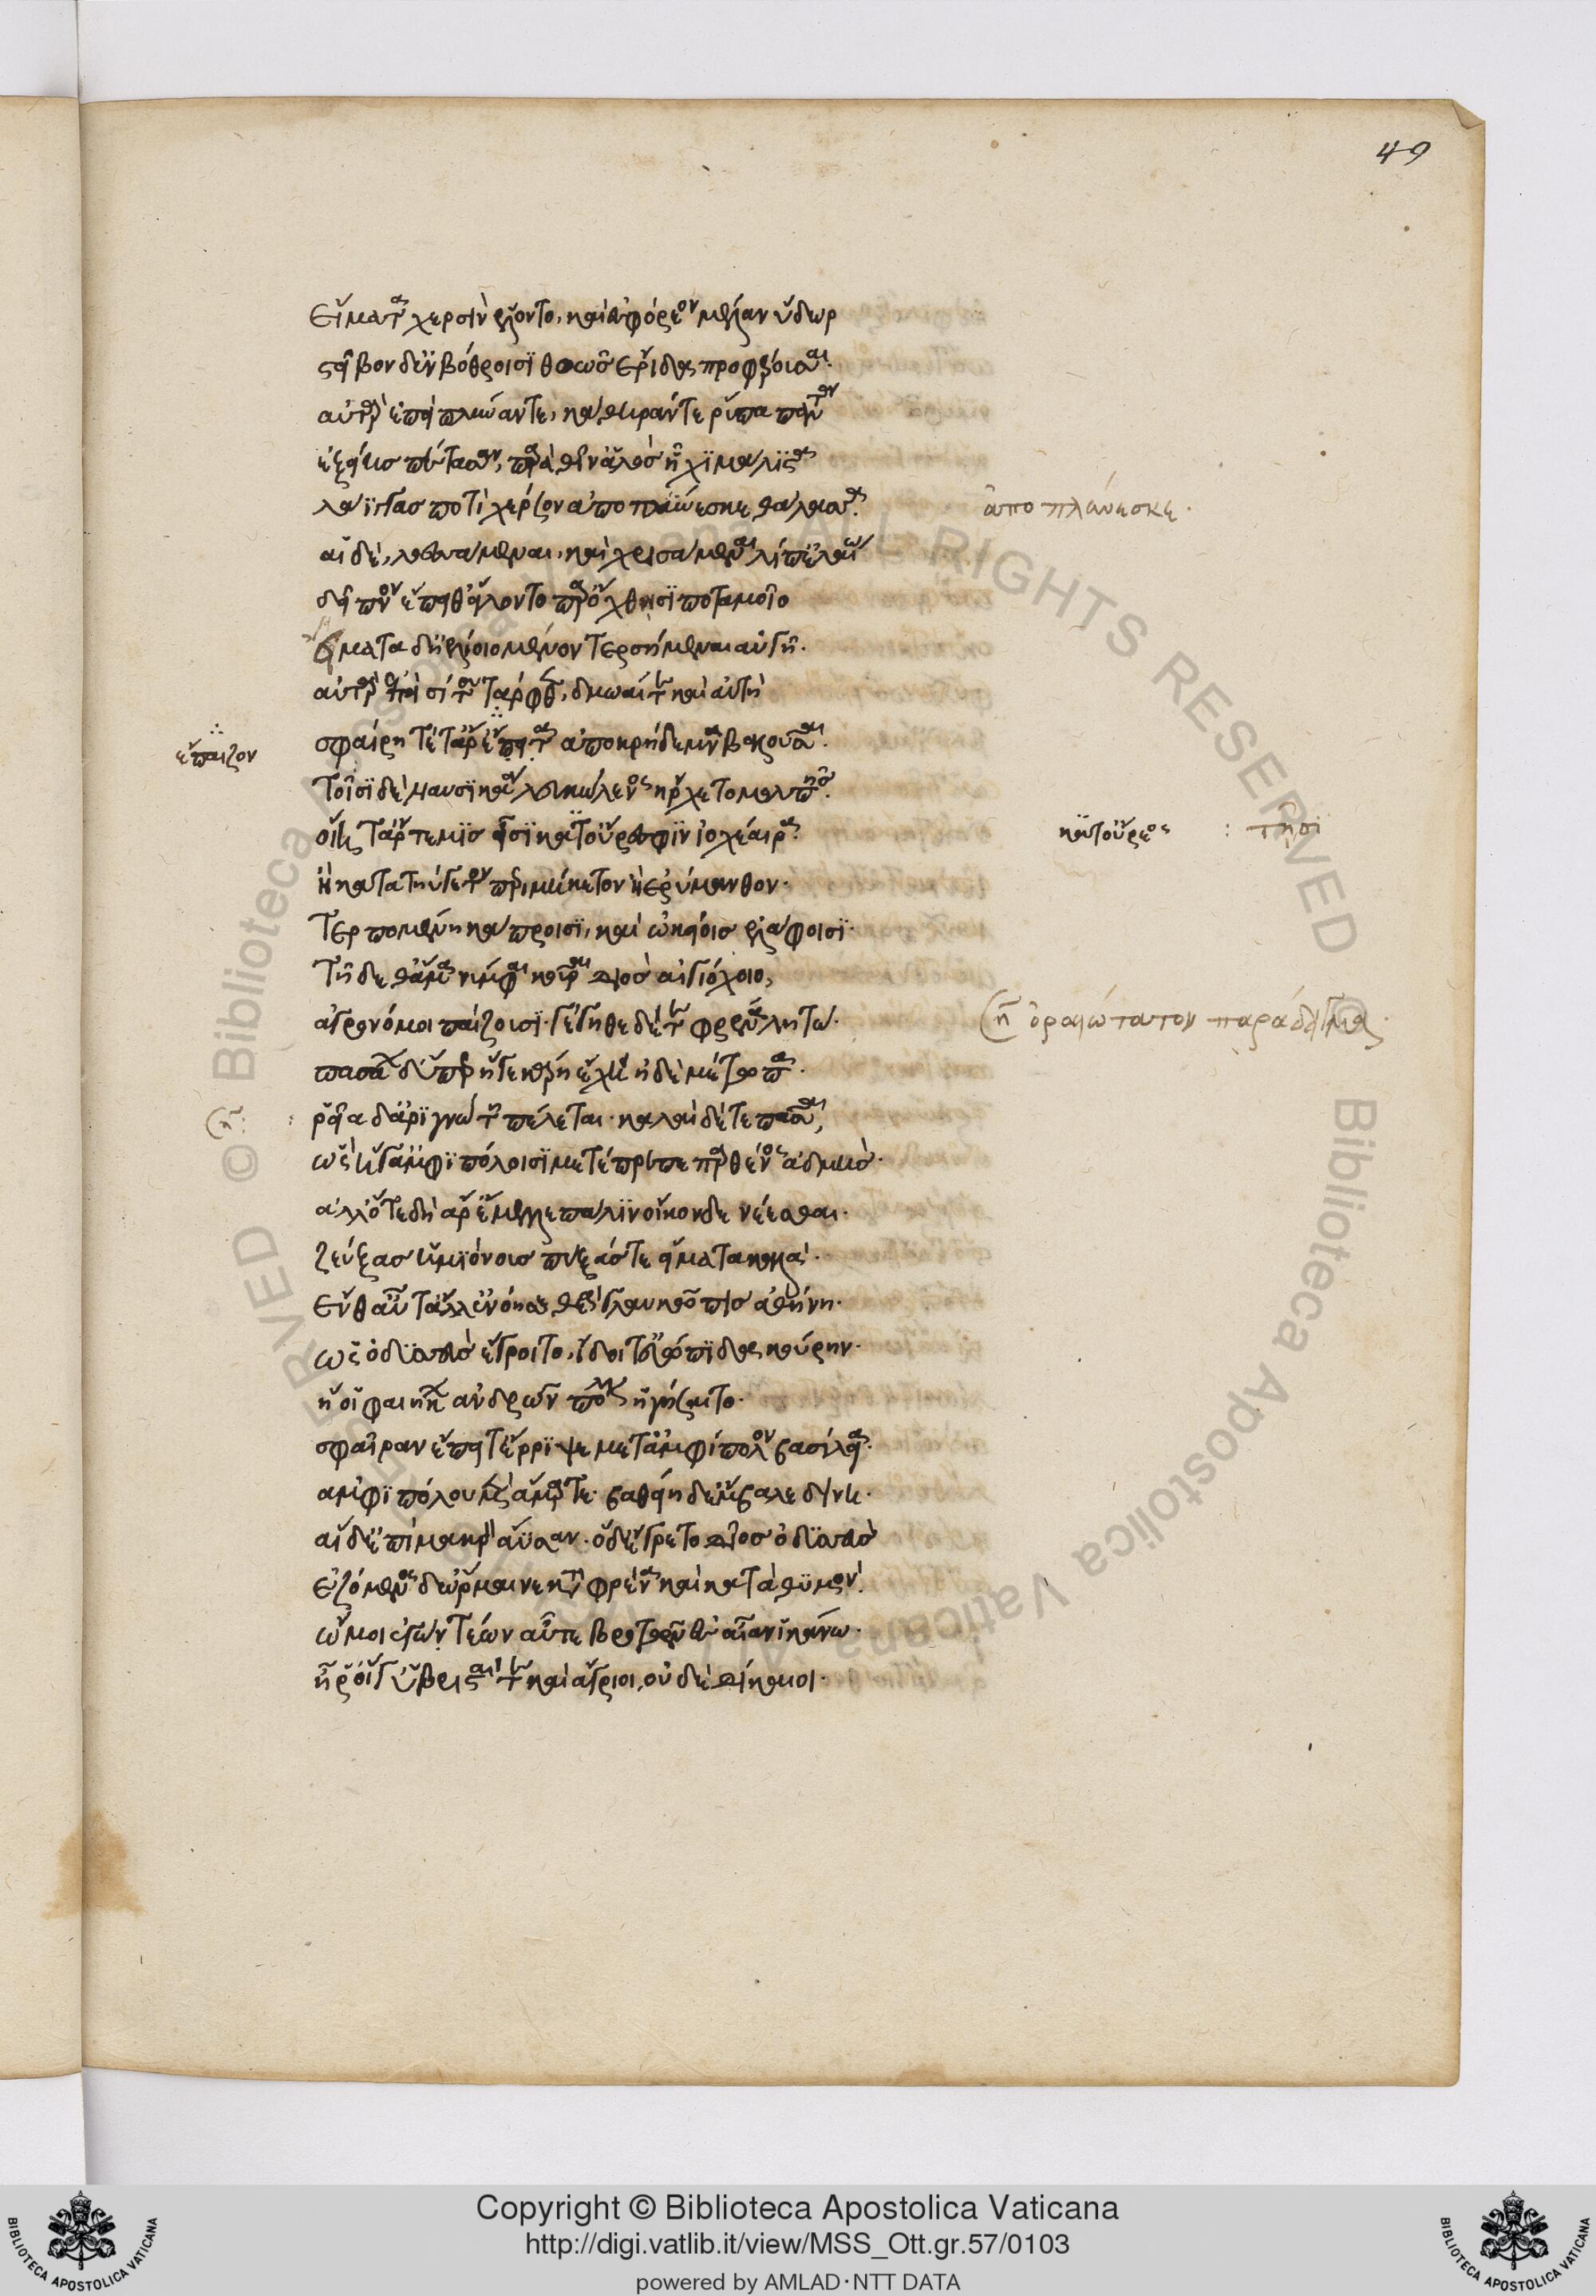 49
εἵματα χερσὶν ἕλοντο, καὶ ἐφόρεον μέλαν ὕδωρ
στεῖβον δ' ἐν βόθροισϊ θοῶς ἔριδα προφέρουσαι.
αὐτὰρ ἐπεὶ πλῦνάν τε, κάθηράν τε ῥύπα πάντα
ἑξείης πέτασαν, παρὰ θῖν' ἁλὸς ἧχϊ μάλιστα
λάϊγγας ποτὶ χέρσον ἀποπλύνεσκε θάλασσα.
ἀποπλύνεσκε.
αἱ δὲ, λοεσσάμεναι, καὶ χρισάμεναι λίπ' ἐλαίω
δεῖπνον ἔπειθ' εἵλοντο παρ' ὄχθησϊ ποταμοῖο
εἵματα δ' ἠελίοιο μένον τερσήμεναι αὐγῆ.
αὐτὰρ ἐπεὶ σίτου τάρφθεν, δμωαί τε καὶ αὐτὴ
σφαίρη τέ τ' ἄρ' ἔπαιζον ἀπὸ κρήδεμνα βαλοῦσαι.
ἔπαιζον
τοῖσϊ δὲ ναυσϊκάα λευκώλενος ἤρχετο μολπῆς.
οἵη τ' ἄρτεμϊς εἶσϊ κατ' οὔρεος ἰοχέαιρα
κατ' οὔρεος : τῆσϊ
ἢ κατὰ τηΰγετον περιμήκετον ἢ ἐρύμανθον.
τερπομένη κάπροισϊ, καὶ ὠκείοις ἐλάφοισϊ.
τῆ δέ θ' ἅμα νύμφαι κοῦραι διὸς αἰγιόχοιο,
ἀγρονόμοι παίζουσϊ. γέγηθε δέ τε φρένα λητώ.
(ση) ὁραιώτατον παράδειγμα.
πασάων δ' ὑπὲρ ἥγε κάρη ἔχει ἠδὲ μέτωπα.
ῥεῖα δ' ἀρϊγνώτη πέλεται. καλαὶ δέ τε πᾶσαι,
ὣς ἥγ' ἀμφϊπόλοισϊ μετέπρεπε παρθένος ἀδμής.
ἀλλ' ὅτε δὴ ἄρ' ἔμελλε πάλϊν οἶκονδε νέεσθαι.
ζεύξασ' ἡμϊόνους πτύξασά τε εἵματα καλά.
ἔνθ' αὖτ' ἄλλ' ἐνόησε θεὰ γλαυκῶπις ἀθήνη.
ὡς ὀδϋσσεὺς ἔγροιτο, ἴδοι τ' εὐώπϊδα κούρην.
ἥ οἱ φαιήκων ἀνδρῶν πόλιν ἡγήσαιτο.
σφαῖραν ἔπειτ' ἔρρϊψε μετ' ἀμφίπολον βασίλεια.
ἀμφϊπόλου μὲν ἅμαρτε. βαθείη δ' ἔμβαλε δίνη.
αἱ δ' ἐπὶ μακρὸν ἄϋσαν. ὁ δ' ἔγρετο δῖος ὀδϋσσεύς
ἑζόμενος δ' ὥρμαινε κατὰ φρένα καὶ κατὰ θϋμόν.
ὤ μοι ἐγὼν τέων αὖτε βροτῶν ἐς γαῖαν ἱκάνω.
ἦ ῥ' οἵγ' ὑβρισταί τε καὶ ἄγριοι, οὐδὲ δίκαιοι.
Copyright © Biblioteca Apostolica Vaticana
http://digi.vatlib.it/view/MSS_Ott.gr.57/0103
powered by AMLAD·NTT DATA